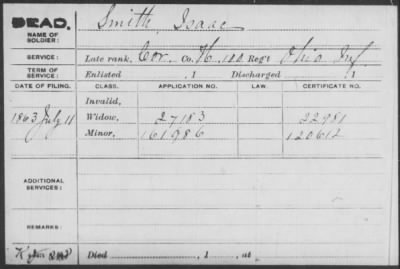 DEAD. Smith, Isaac
NAME OF SOLDIER:
SERVICE: Late rank, Cor. Co. K, 120 Reg't Ohio Inf.
TERM OF SERVICE: Enlisted , 1 Discharged , 1
DATE OF FILING. CLASS. APPLICATION NO. LAW. CERTIFICATE NO.
Invalid,
1863 July 11 Widow, 27183 22981
Minor, 161986 120612
ADDITIONAL SERVICES:
REMARKS:
Died , 1 , at